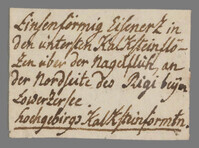 Linsenförmig Eisenerz in
den untersten Kalksteinflö-
zen über der Nagelfluh, an
der Nordseite des Rigi beÿm
Lowerzersee
hochgebirgs Kalksteinformtn.